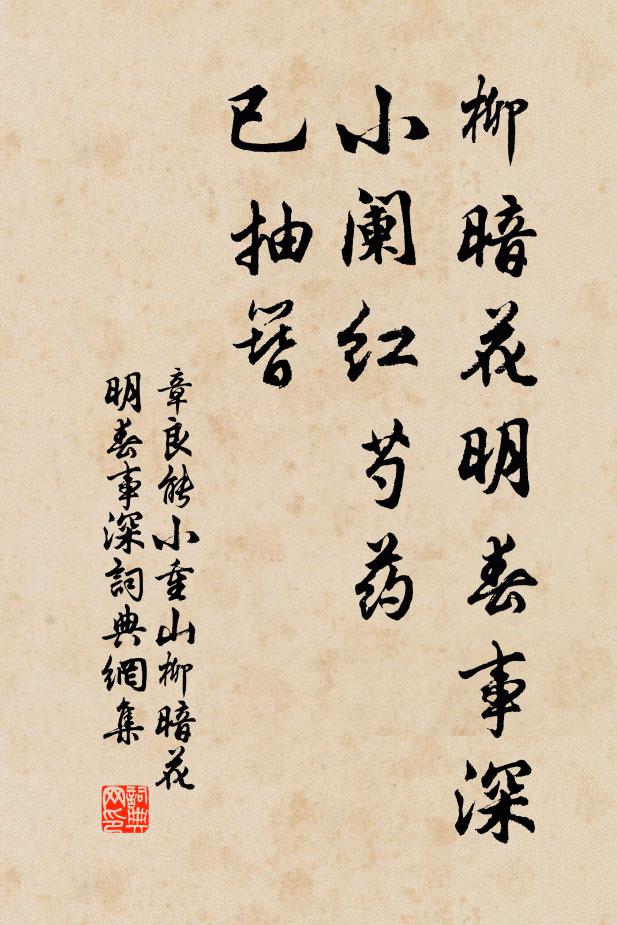 柳暗花明春事深
小阑红芍药
已抽簪
章良能小重山柳暗花
明春事深詞典網集
詞典
网印